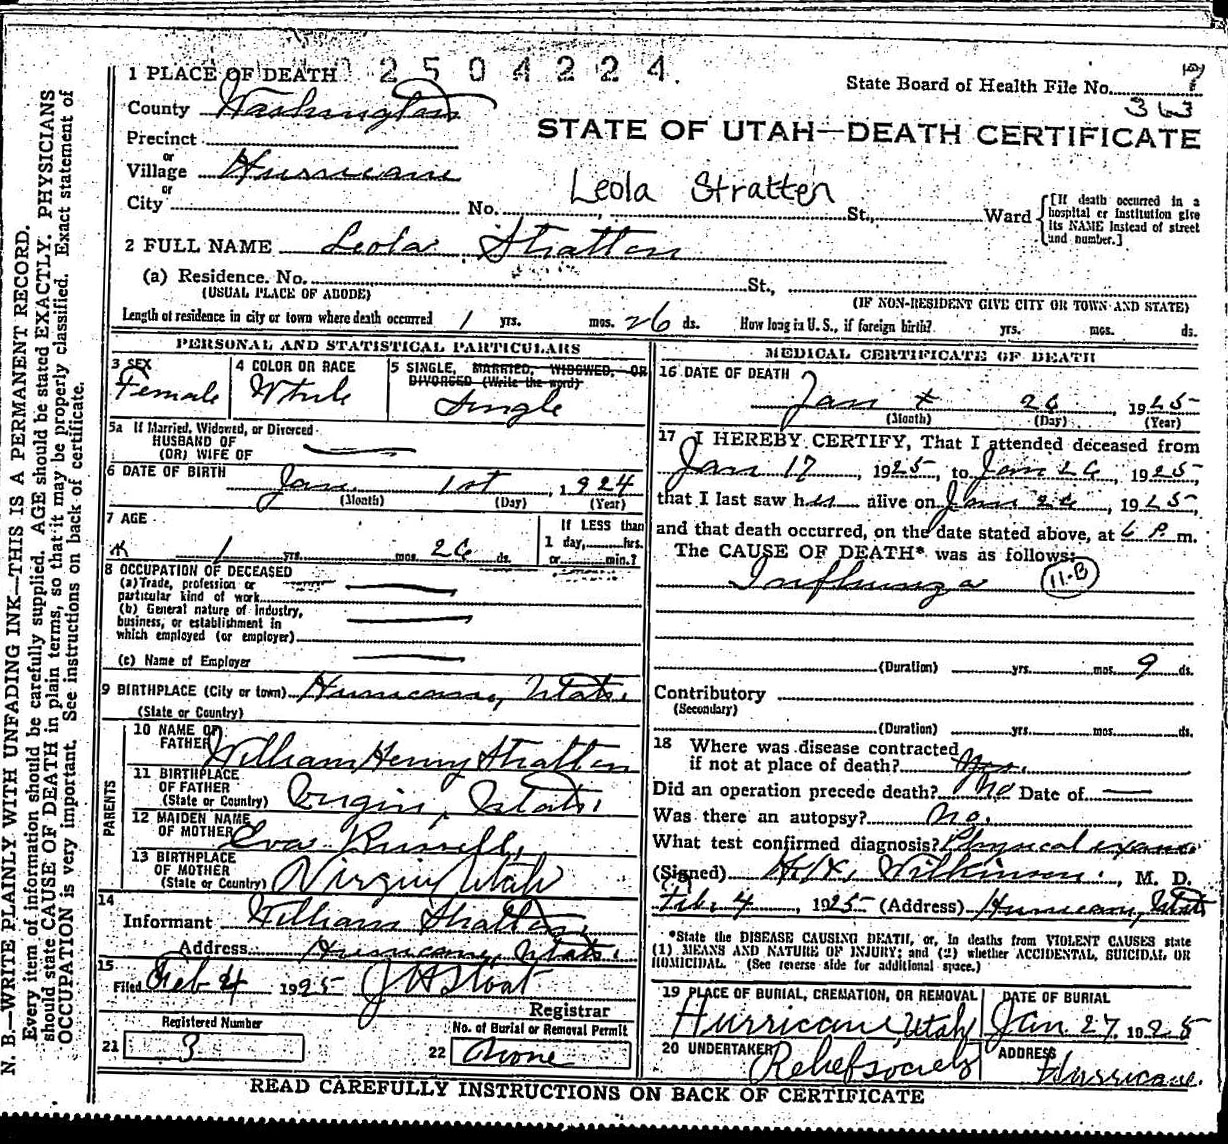 2504224.
1 PLACE OF DEATH
State Board of Health File No. 7
363
County Washington
STATE OF UTAH—DEATH CERTIFICATE
Precinct
or
Village Hurricane
or
Leola Stratten
City No. St., Ward
[If death occurred in a
hospital or institution give
its NAME instead of street
and number.]
2 FULL NAME Leola Stratton
(a) Residence. No. St.,
(USUAL PLACE OF ABODE)
(IF NON-RESIDENT GIVE CITY OR TOWN AND STATE)
Length of residence in city or town where death occurred 1 yrs. mos. 26 ds. How long in U.S., if foreign birth? yrs. mos. ds.
PERSONAL AND STATISTICAL PARTICULARS
3 SEX
Female
4 COLOR OR RACE
White
5 SINGLE, MARRIED, WIDOWED, OR
DIVORCED (Write the word)
Single
5a If Married, Widowed, or Divorced
HUSBAND OF
(OR) WIFE OF
6 DATE OF BIRTH
Jan. 1st, 1924
(Month) (Day) (Year)
7 AGE
1 yrs. mos. 26 ds.
If LESS than
1 day, hrs.
or min.?
8 OCCUPATION OF DECEASED
(a) Trade, profession or
particular kind of work
(b) General nature of industry,
business, or establishment in
which employed (or employer)
(c) Name of Employer
9 BIRTHPLACE (City or town) Hurricane, Utah.
(State or Country)
PARENTS
10 NAME OF
FATHER William Henry Stratton
11 BIRTHPLACE
OF FATHER
(State or Country) Virgin, Utah.
12 MAIDEN NAME
OF MOTHER Eva Russell,
13 BIRTHPLACE
OF MOTHER
(State or Country) Virgin, Utah
14
Informant William Stratton,
Address Hurricane, Utah.
15
Filed Feb 4 1925 J H Stout
Registrar
Registered Number
21 3
No. of Burial or Removal Permit
22 None
MEDICAL CERTIFICATE OF DEATH
16 DATE OF DEATH
Jan 26, 1925
(Month) (Day) (Year)
17 I HEREBY CERTIFY, That I attended deceased from
Jan 17, 1925, to Jan 26, 1925,
that I last saw her alive on Jan 26, 1925,
and that death occurred, on the date stated above, at 6 P. m.
The CAUSE OF DEATH* was as follows:
Influenza 11-B
(Duration) yrs. mos. 9 ds.
Contributory
(Secondary)
(Duration) yrs. mos. ds.
18 Where was disease contracted
if not at place of death?
Did an operation precede death? No Date of —
Was there an autopsy? No.
What test confirmed diagnosis? Physical exam.
(Signed) Wilkinson., M. D.
Feb. 4, 1925 (Address) Hurricane, Utah
*State the DISEASE CAUSING DEATH, or, in deaths from VIOLENT CAUSES state
(1) MEANS AND NATURE OF INJURY; and (2) whether ACCIDENTAL, SUICIDAL OR
HOMICIDAL. (See reverse side for additional space.)
19 PLACE OF BURIAL, CREMATION, OR REMOVAL
Hurricane, Utah
DATE OF BURIAL
Jan. 27, 1925
20 UNDERTAKER
Relief society
ADDRESS
Hurricane.
READ CAREFULLY INSTRUCTIONS ON BACK OF CERTIFICATE
N. B.—WRITE PLAINLY WITH UNFADING INK—THIS IS A PERMANENT RECORD.
Every item of information should be carefully supplied. AGE should be stated EXACTLY. PHYSICIANS
should state CAUSE OF DEATH in plain terms, so that it may be properly classified. Exact statement of
OCCUPATION is very important. See instructions on back of certificate.